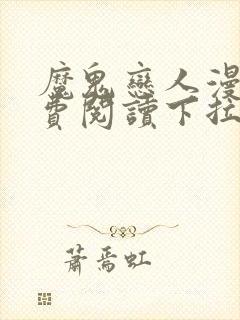 魔鬼戀人漫
費閱讀下拉
蕭焉虹